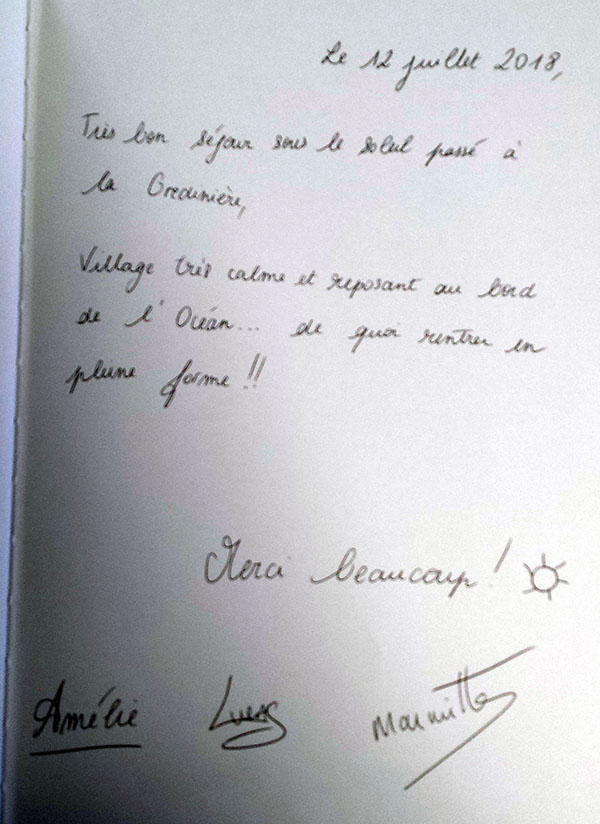 Le 12 juillet 2018,
Très bon séjour sous le soleil passé à
la Gredinière,
Village très calme et reposant au bord
de l'Océan... de quoi rentrer en
pleine forme !!
Merci beaucoup !
Amélie Lucas